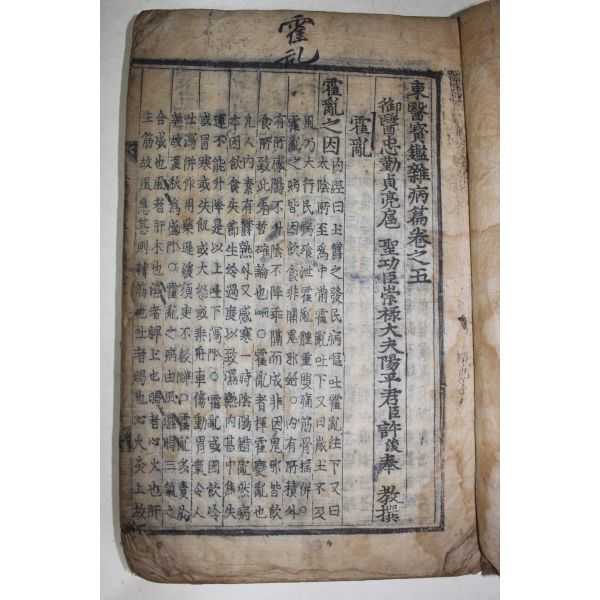 霍亂
東醫寶鑑雜病篇卷之五
御醫忠勤貞亮扈 聖功臣崇祿大夫陽平君臣許浚奉 教撰
霍亂
霍亂之因 內經曰土鬱之發民病嘔吐霍亂注下又曰
太陰所至爲中滿霍亂吐下又曰歲土不及
風乃大行民病飱泄霍亂體重腹痛筋骨搖併○
霍亂之病皆因飮食非關鬼邪○內有所積外
有所感陽不升陰不降乖隔而成非因鬼邪皆飮
食所致此乃確論也○霍亂者揮霍變亂也
凡人內素有鬱熱外又感寒一時陰陽錯亂然病
本因飮食失節生冷過度以致濕熱內甚中焦失
運不能升降是以上吐下瀉○霍亂或因飮冷
或冒寒或失飢或大怒或乘舟車傷動胃氣令人
吐瀉併作用藥遲緩須臾不救○霍亂多責於
熱故夏秋爲盛○霍亂之病由風濕暍三氣之
合成也風者肝木也濕者脾土也暍者心火也肝
主筋故風急甚則轉筋也吐者暍也心火炎上故